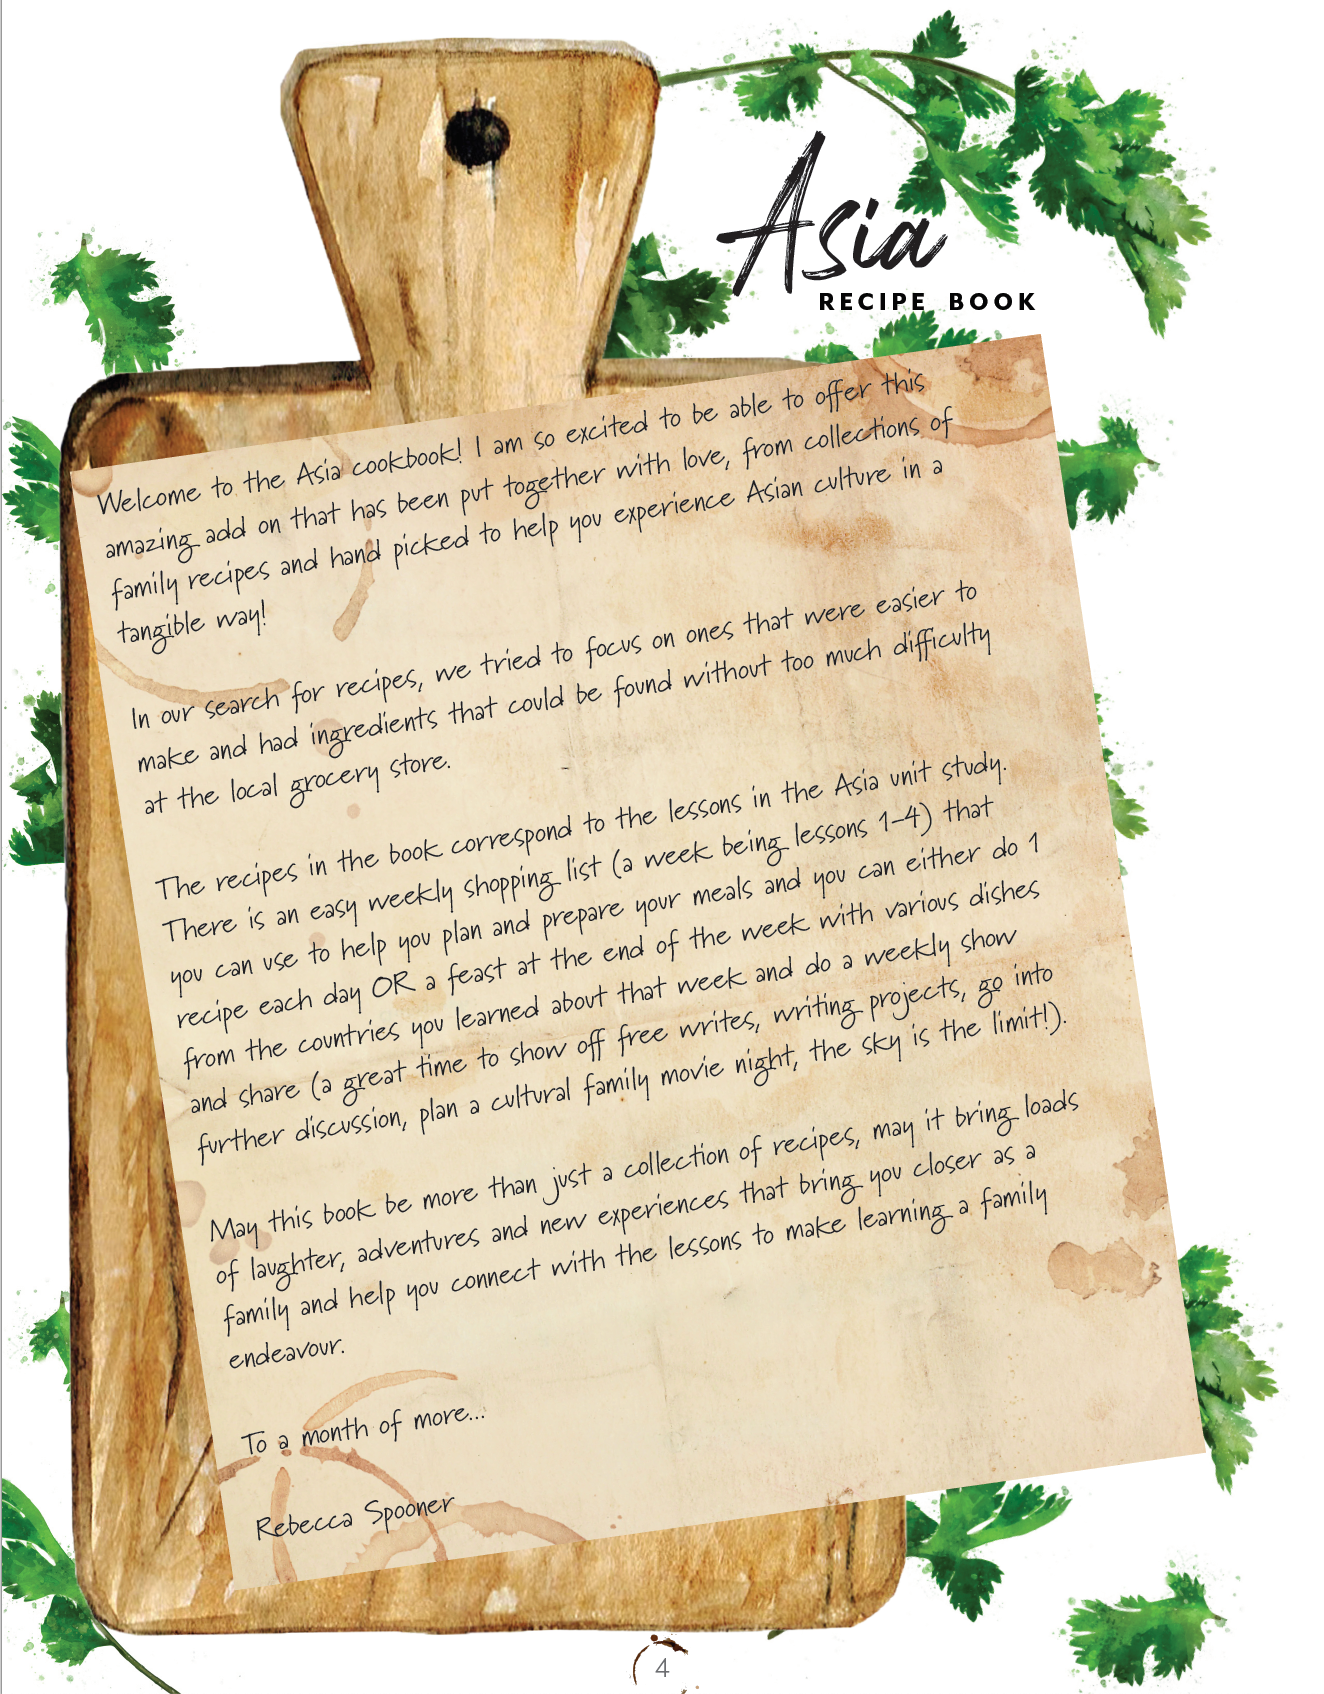 Asia
RECIPE BOOK
Welcome to the Asia cookbook! I am so excited to be able to offer this
amazing add on that has been put together with love, from collections of
family recipes and hand picked to help you experience Asian culture in a
tangible way!
In our search for recipes, we tried to focus on ones that were easier to
make and had ingredients that could be found without too much difficulty
at the local grocery store.
The recipes in the book correspond to the lessons in the Asia unit study.
There is an easy weekly shopping list (a week being lessons 1-4) that
you can use to help you plan and prepare your meals and you can either do 1
recipe each day OR a feast at the end of the week with various dishes
from the countries you learned about that week and do a weekly show
and share (a great time to show off free writes, writing projects, go into
further discussion, plan a cultural family movie night, the sky is the limit!).
May this book be more than just a collection of recipes, may it bring loads
of laughter, adventures and new experiences that bring you closer as a
family and help you connect with the lessons to make learning a family
endeavour.
To a month of more...
Rebecca Spooner
4